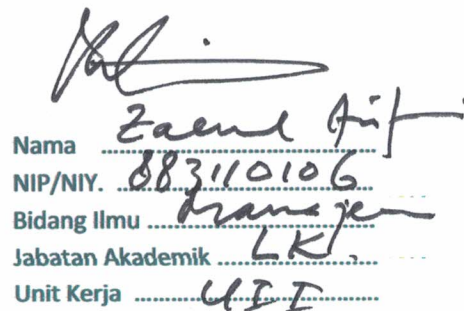 Nama Zaenal Arif
NIP/NIY. 883110106
Bidang Ilmu Manajemen
Jabatan Akademik LK.
Unit Kerja UII